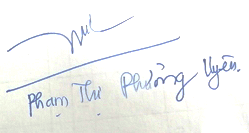 Phạm Thị Phưởng Uyên.